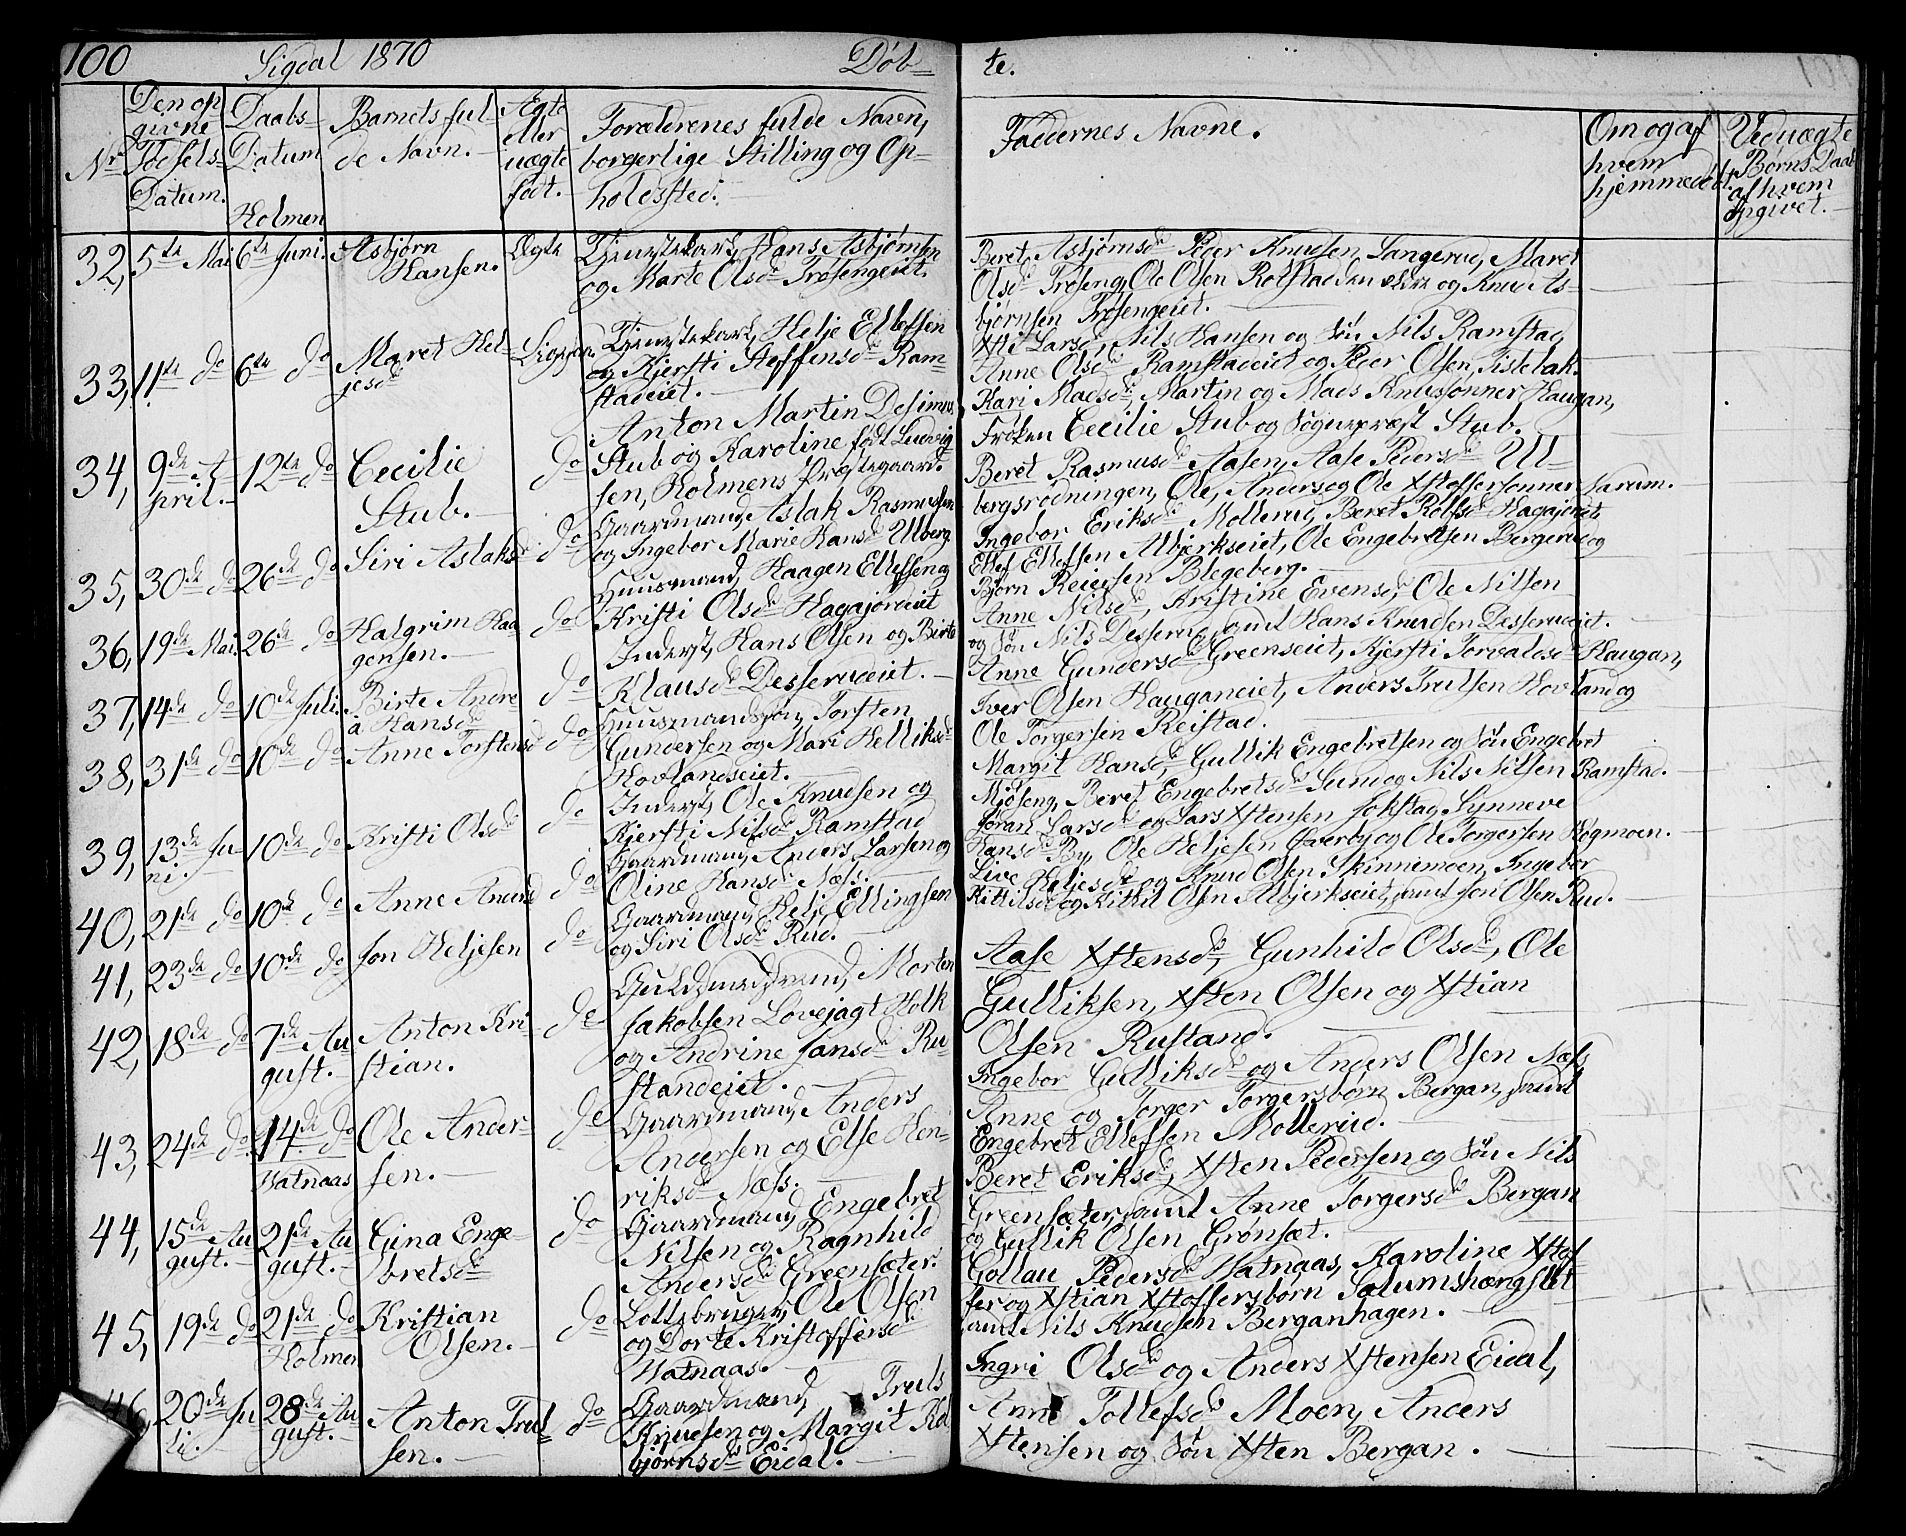 100 Sigdal 1870 Døbte.
Nr
Den opgivne Fødsels-Datum.
Daabs-Datum
Holmen
Barnets fulde Navn.
Ægte eller uægte født.
Forældrenes fulde Navn, borgerlige Stilling og Opholdssted.
Faddernes Navne.
Om og af hvem hjemmedøbt.
Ved uægte Børns Daab af hvem opgivet.
32, 5te Mai 6te Juni. Asbjørn Hansen. Ægte
Tjenestekarl, Hans Asbjørnsen
og Marte Olsd. Frøsengeiet.
Beret Asbjørnsd. Peder Knudsen, Langerud, Maret
Olsd. Frøseng, Ole Olsen Rolfstadden ældre og Knud As-
bjørnsen Frøsengeiet.
33, 11te do 6te do Maret Hel-
jesd.
Tjenestekarl, Helje Ellefsen
og Kjersti Steffensd. Ram-
stadeiet.
Xsti Larsd. Nils Hansen og Søn Nils Ramstad,
Anne Olsd. Ramstadeiet og Peder Olsen, Pistebak.
34, 9de A-
pril. 12te do Cecilie
Stub. do
Anton Martin Desimus
Stub og Karoline født Ludvig-
sen, Holmens Præstegaard.
Kari Madsd. Martin og Mads Knudsønner Haugan,
Frøken Cecilie Stub og Sognepræst Stub.
35, 30de do 26de do Siri Aslaksd. do
Gaardmand, Aslak Rasmussen
og Ingebor Marie Hansd. Ulberg.
Beret Rasmusd. Aasen, Aase Pedersd. Ul-
bergsrødningen, Ole, Anders og Ole Xstoffersønner Narum.
36, 19de Mai. 26de do Halgrim Haa-
gensen. do
Huusmand, Haagen Ellefsen og
Kristi Olsd. Hagajordeiet
Ingebor Eriksd. Mollerud, Beret Rolfsd. Hagajordet
Ellef Ellefsen Albjerkseiet, Ole Engebretsen Bergerud og
Bjørn Reiersen Blegeberg.
37, 14de do 10de Juli. Birte Andre-
a Hansd. do
Inderst, Hans Olsen og Birte
Klausd. Desserudeiet.
Anne Nilsd. Kristine Evensd. Ole Nilsen
og Søn Nils Desserud, samt Hans Knudsen Desserudeiet.
38, 31te do 10de do Anne Torstensd. do
Huusmandssøn, Torsten
Gundersen og Mari Helliksd.
Hovlandseiet.
Anne Gundersd. Greenseiet, Kjersti Torvaldsd. Haugan,
Iver Olsen Hauganeiet, Anders Trulsen Hovland og
Ole Torgersen Reistad.
39, 13de Ju-
ni. 10de do Kristi Olsd. do
Inderst, Ole Knudsen og
Kjersti Nilsd. Ramstad
Margit Hansd. Gullik Engebretsen og Søn Engebret
Mjøseng, Beret Engebretsd. Lund og Nils Nilsen Ramstad.
40, 21de do 10de do Anne Andersd. do
Gaardmand, Anders Larsen og
Oline Hansd. Næss.
Jøran Larsd. og Lars Xstensen Jokstad, Synneve
Hansd. By, Ole Heljesen Øverby og Ole Torgersen Høgmoen.
41, 23de do 10de do Jon Heljesen do
Gaardmand, Helje Ellingsen
og Siri Olsd. Rud.
Live Heljesd. og Knud Olsen Skinnemoen, Ingebor
Kittilsd. og Kittil Olsen Albjerkseiet, samt Jon Olsen Rud.
42, 18de do 7de Au-
gust. Anton Kri-
stian. do
Guldsmedsvend, Morten
Jakobsen Lovejagt Holk
og Andrine Jansd. Ru-
standeiet.
Aase Xstensd. Gunhild Olsd. Ole
Gulliksen, Xsten Olsen og Xstian
Olsen Rustand.
43, 24de do. 14de do Ole Ander-
sen. do
Gaardmand, Anders
Andersen og Else Hen-
riksd. Næss.
Ingebor Gulliksd. og Anders Olsen Næss,
Anne og Torger Torgersbørn Bergan, samt
Engebret Ellefsen Mollerud.
Vatnaas
44, 15de Au-
gust. 21de Au-
gust. Gina Enge-
bretsd. do
Gaardmand, Engebret
Nilsen og Ragnhild
Andersd. Greensæter.
Beret Eriksd. Xsten Pedersen og Søn Nils
Greensæter, samt Anne Torgersd. Bergan
og Gullik Olsen Grønsæt.
45, 19de do 21de do Kristian
Olsen. do
Lottsbruger, Ole Olsen
og Dorte Kristoffersd.
Vatnaas.
Gollau Pedersd. Vatnaas, Karoline Xstof-
fer og Xstian Xstoffersbørn Solumshængslet
samt Nils Knudsen Berganhagen.
Holmen
46, 20de Ju-
li. 28de Au-
gust. Anton Trul-
sen. do
Gaardmand, Truls
Knudsen og Margit Kol-
bjørnsd. Eidal.
Ingri Olsd. og Anders Xstensen Eidal,
Anne Tollefsd. Moen, Anders
Xstensen og Søn Xsten Bergan.